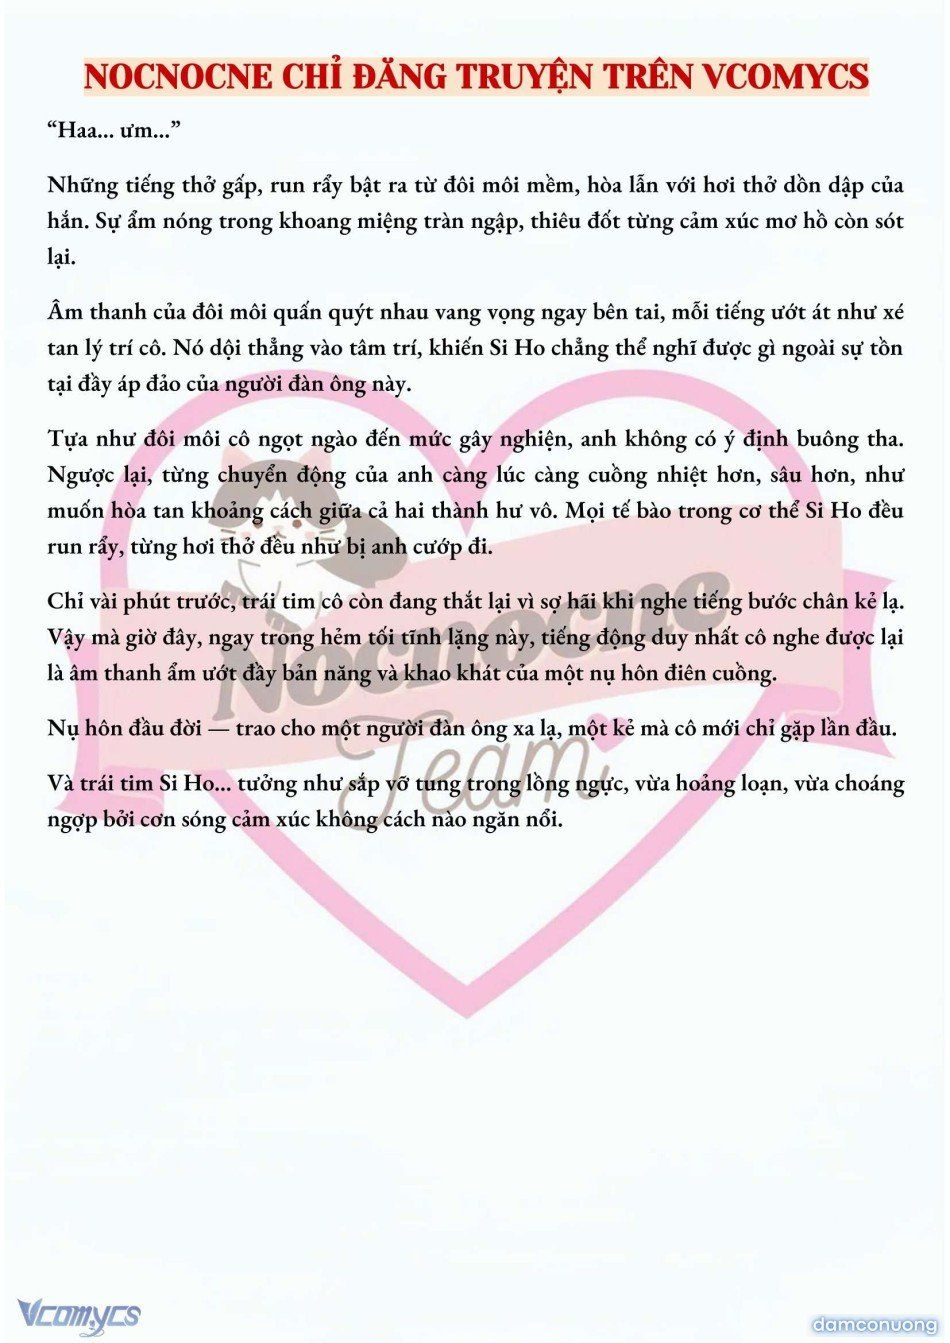 NOCNOCNE CHỈ ĐĂNG TRUYỆN TRÊN VCOMYCS
“Haa... ưm...”
Những tiếng thở gấp, run rẩy bật ra từ đôi môi mềm, hòa lẫn với hơi thở dồn dập của
hắn. Sự ẩm nóng trong khoang miệng tràn ngập, thiêu đốt từng cảm xúc mơ hồ còn sót
lại.
Âm thanh của đôi môi quấn quýt nhau vang vọng ngay bên tai, mỗi tiếng ướt át như xé
tan lý trí cô. Nó dội thẳng vào tâm trí, khiến Si Ho chẳng thể nghĩ được gì ngoài sự tồn
tại đầy áp đảo của người đàn ông này.
Tựa như đôi môi cô ngọt ngào đến mức gây nghiện, anh không có ý định buông tha.
Ngược lại, từng chuyển động của anh càng lúc càng cuồng nhiệt hơn, sâu hơn, như
muốn hòa tan khoảng cách giữa cả hai thành hư vô. Mọi tế bào trong cơ thể Si Ho đều
run rẩy, từng hơi thở đều như bị anh cướp đi.
Chỉ vài phút trước, trái tim cô còn đang thắt lại vì sợ hãi khi nghe tiếng bước chân kẻ lạ.
Vậy mà giờ đây, ngay trong hẻm tối tĩnh lặng này, tiếng động duy nhất cô nghe được lại
là âm thanh ẩm ướt đầy bản năng và khao khát của một nụ hôn điên cuồng.
Nụ hôn đầu đời — trao cho một người đàn ông xa lạ, một kẻ mà cô mới chỉ gặp lần đầu.
Và trái tim Si Ho... tưởng như sắp vỡ tung trong lồng ngực, vừa hoảng loạn, vừa choáng
ngợp bởi cơn sóng cảm xúc không cách nào ngăn nổi.
Nocnocne
Team
Vcomycs
damconuong